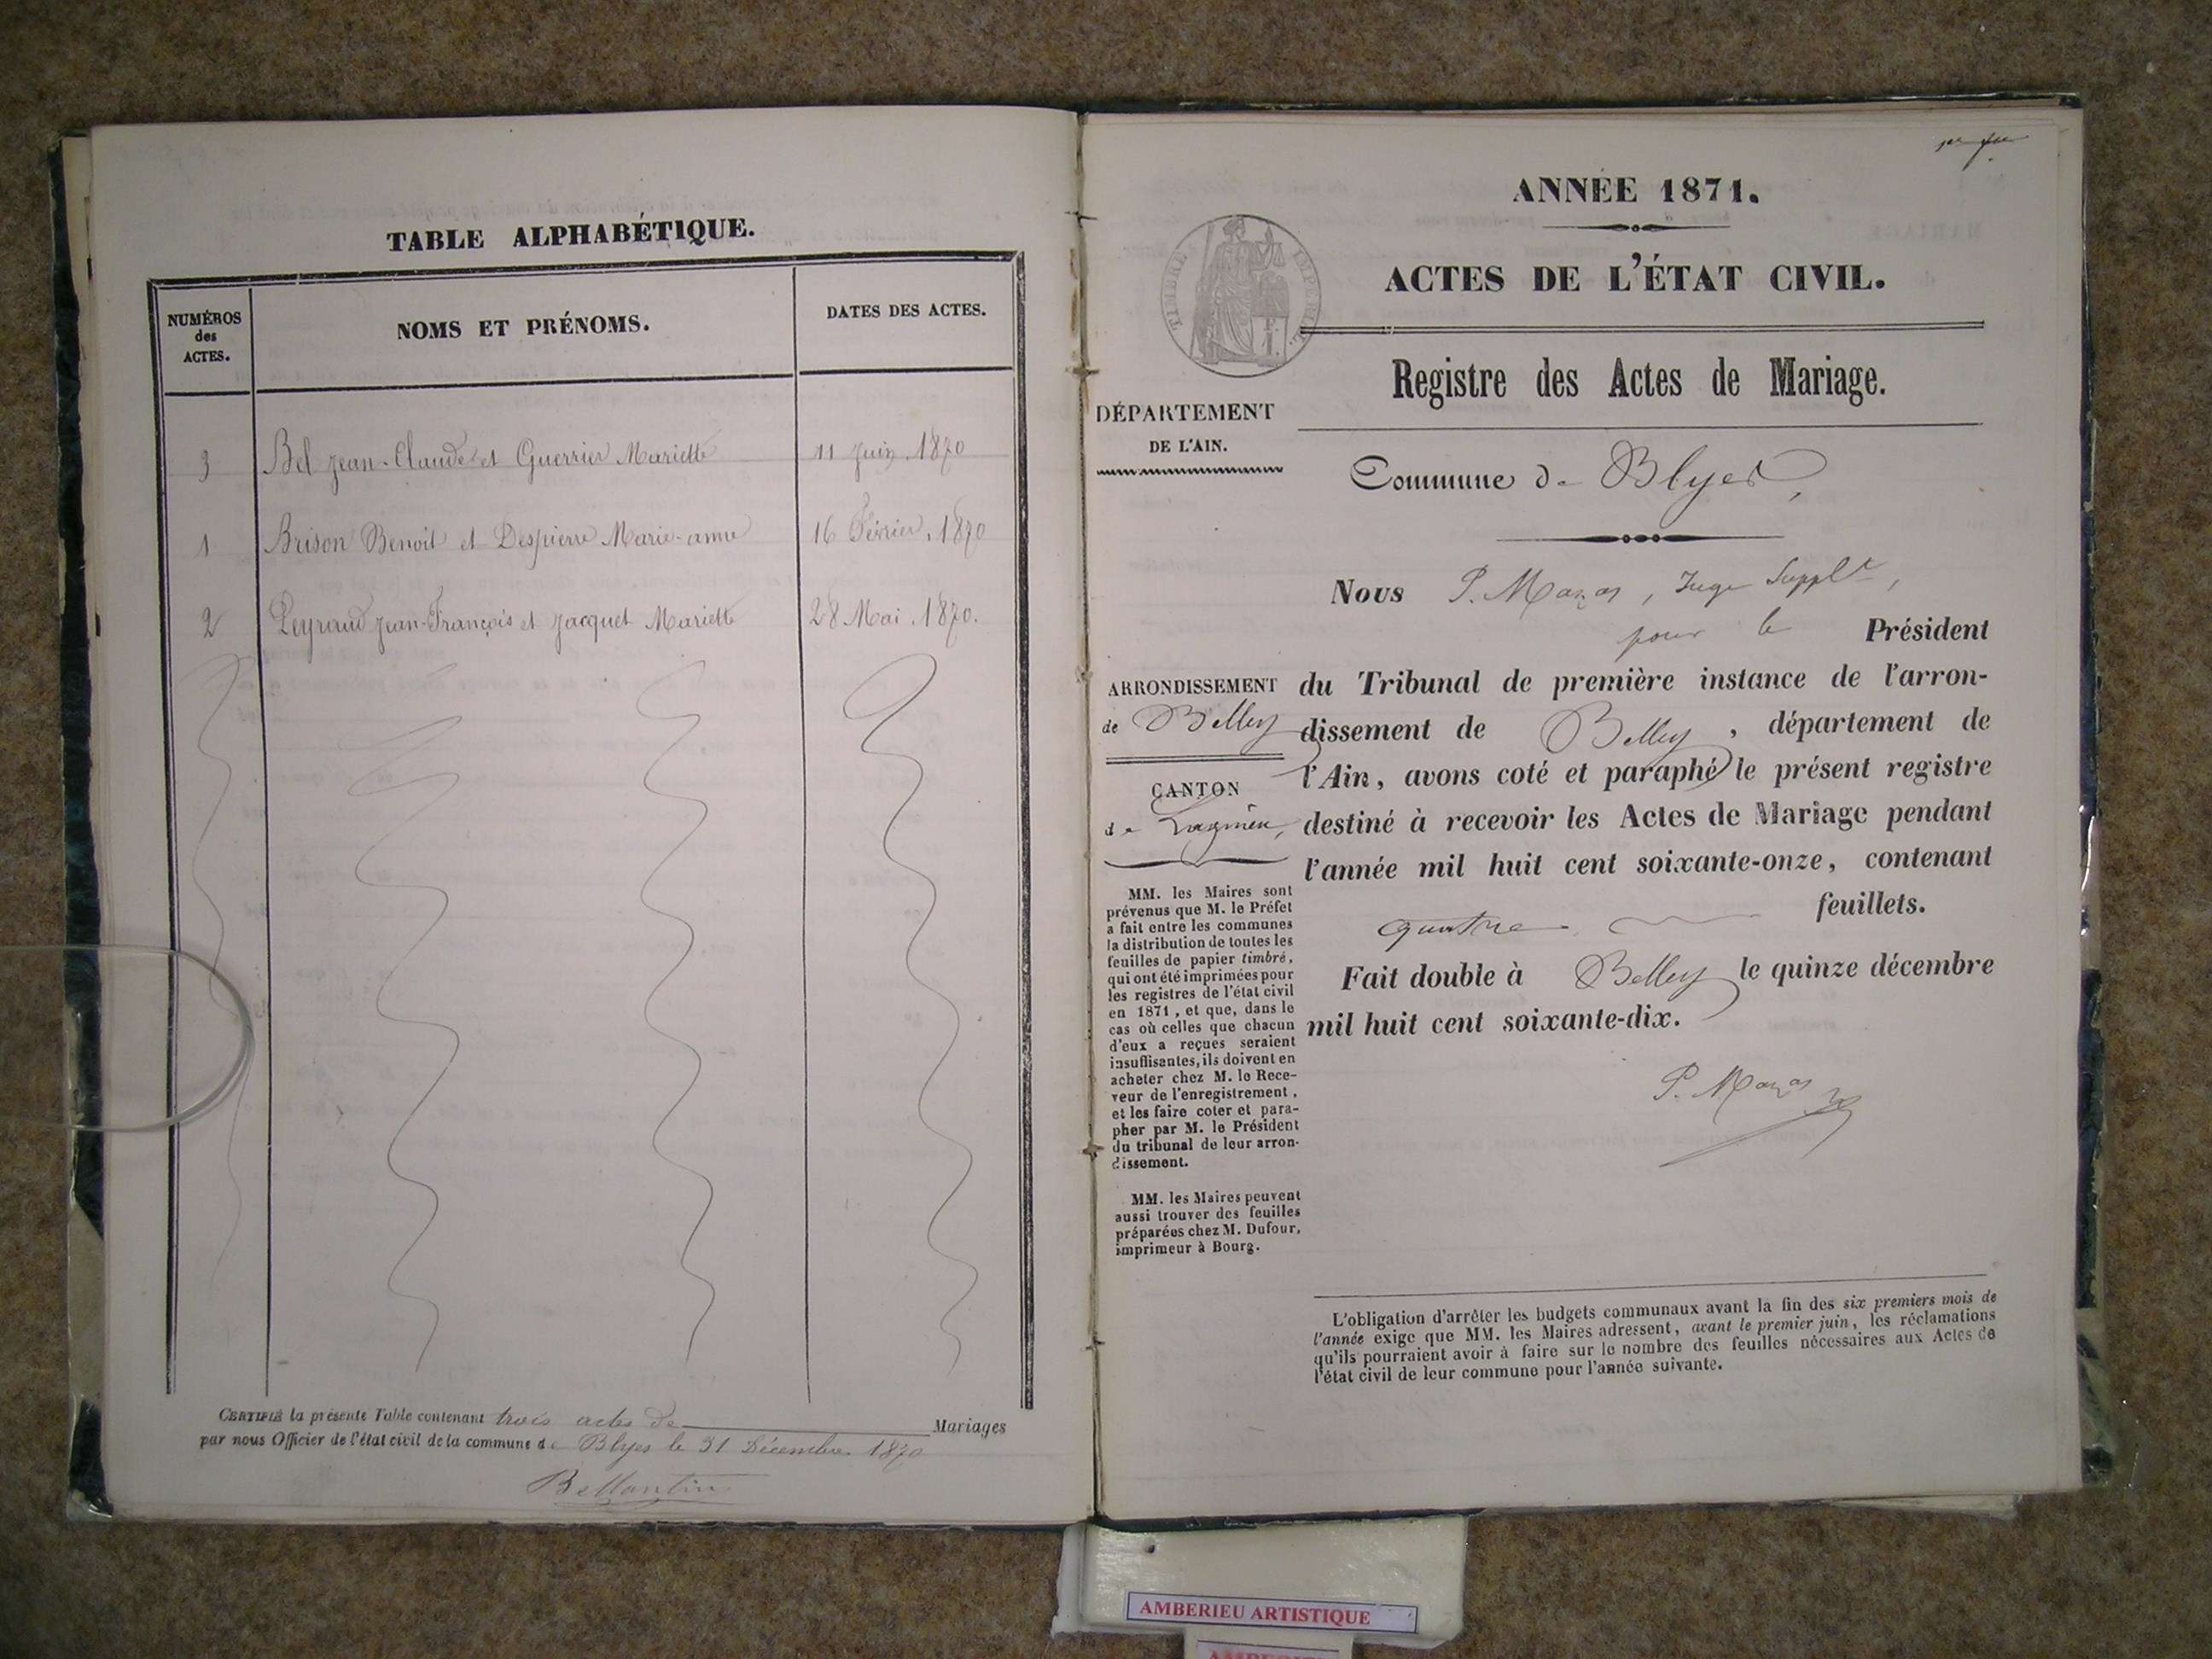 TABLE ALPHABÉTIQUE.
NUMÉROS
des
ACTES.
NOMS ET PRÉNOMS.
DATES DES ACTES.
3 Bel Jean-Claude et Guerrier Mariette 11 Juin 1870
1 Brison Benoit et Despierre Marie-anne 16 Février 1870
2 Peyraud Jean-François et Jacquet Mariette 28 Mai 1870.
CERTIFIÉ la présente Table contenant trois actes de Mariages
par nous Officier de l'état civil de la commune de Blyes le 31 Décembre 1870
ANNÉE 1871.
ACTES DE L'ÉTAT CIVIL.
TIMBRE IMPERIAL
Registre des Actes de Mariage.
DÉPARTEMENT
DE L'AIN.
Commune de Blyes,
Nous P. Mazas, Juge Supplt,
pour le Président
du Tribunal de première instance de l'arron-
dissement de Belley, département de
l'Ain, avons coté et paraphé le présent registre
destiné à recevoir les Actes de Mariage pendant
l'année mil huit cent soixante-onze, contenant
quatre feuillets.
Fait double à Belley le quinze décembre
mil huit cent soixante-dix.
P. Mazas
ARRONDISSEMENT
de Belley
CANTON
de Lagnieu,
MM. les Maires sont
prévenus que M. le Préfet
a fait entre les communes
la distribution de toutes les
feuilles de papier timbré,
qui ont été imprimées pour
les registres de l'état civil
en 1871, et que, dans le
cas où celles que chacun
d'eux a reçues seraient
insuffisantes, ils doivent en
acheter chez M. le Rece-
veur de l'enregistrement,
et les faire coter et para-
pher par M. le Président
du tribunal de leur arron-
dissement.
MM. les Maires peuvent
aussi trouver des feuilles
préparées chez M. Dufour,
imprimeur à Bourg.
L'obligation d'arrêter les budgets communaux avant la fin des six premiers mois de
l'année exige que MM. les Maires adressent, avant le premier juin, les réclamations
qu'ils pourraient avoir à faire sur le nombre des feuilles nécessaires aux Actes de
l'état civil de leur commune pour l'année suivante.
AMBERIEU ARTISTIQUE